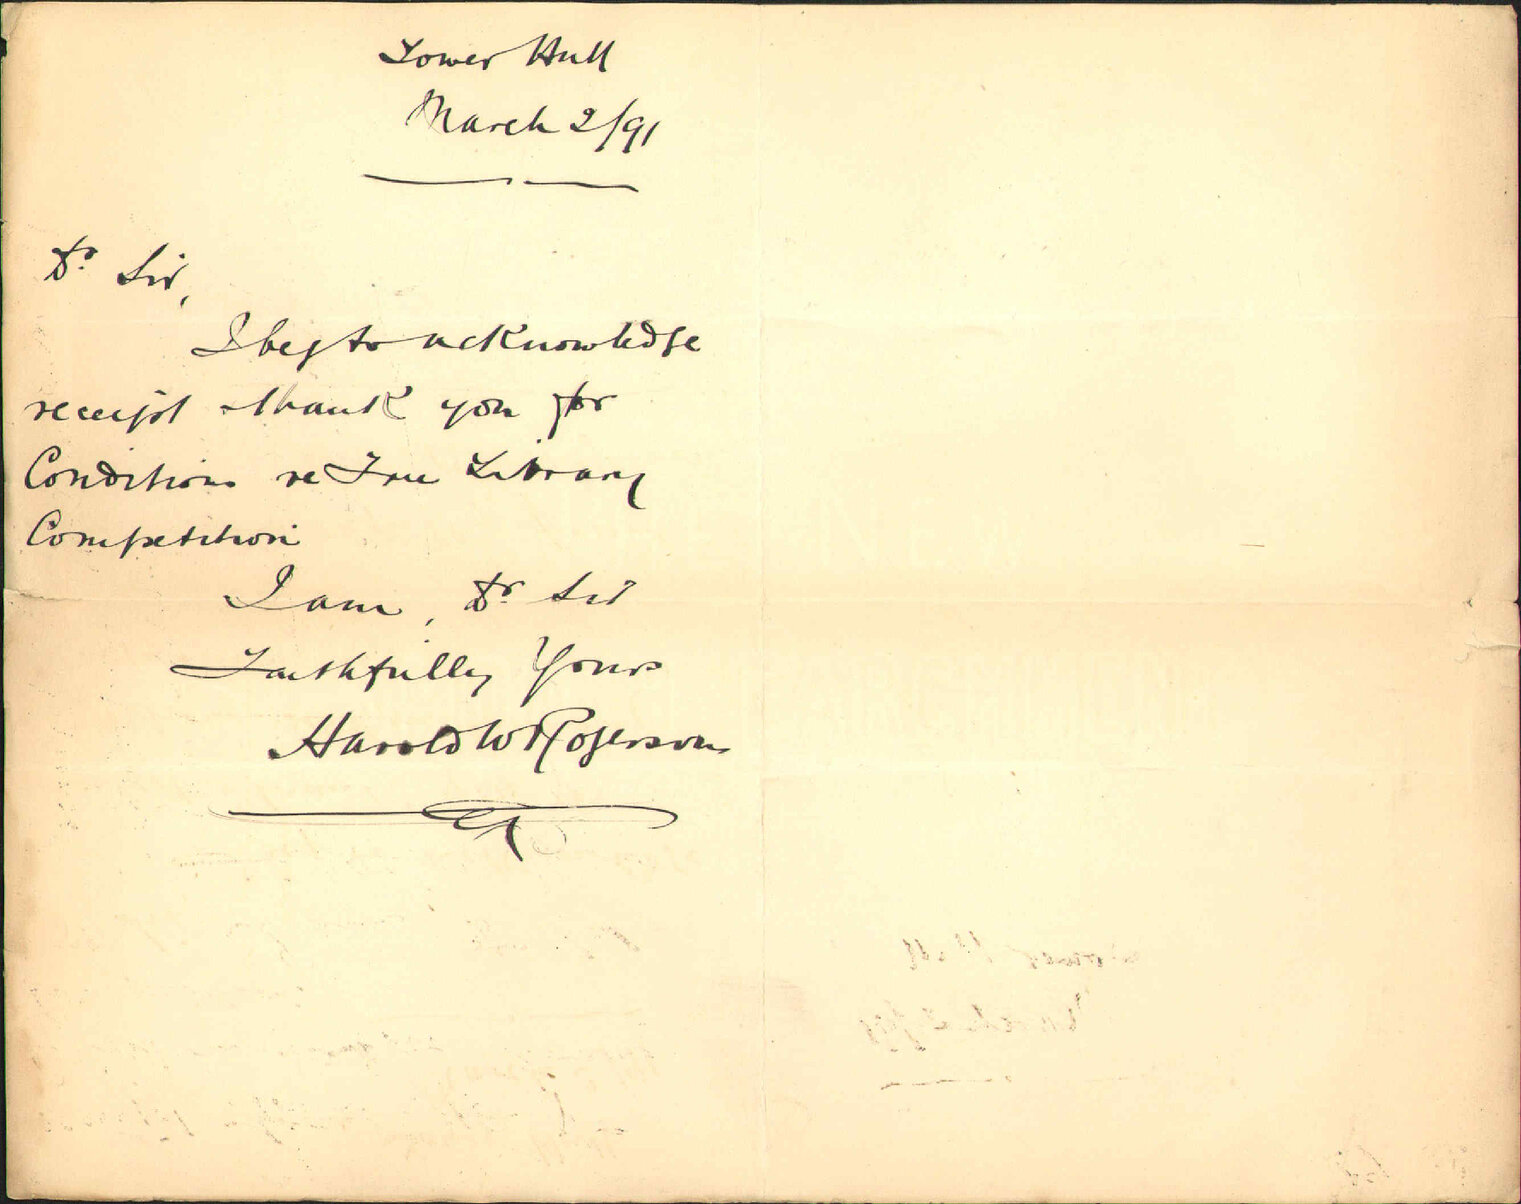 Lower Hutt
March 2/91
Dr Sir,
I beg to acknowledge
receipt & thank you for
Conditions re Free Library
Competition
I am, Dr Sir
Faithfully Yours
Harold W Rogerson